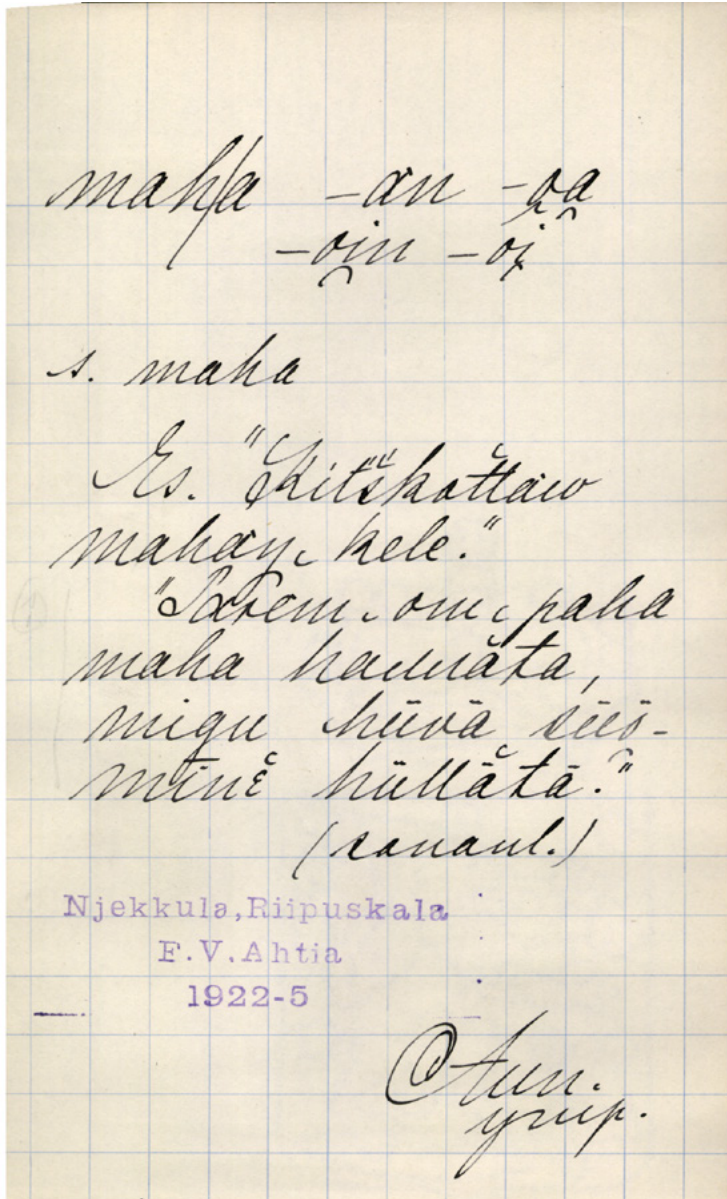 mah/a -an -oa
-oin -oi
s. maha
Es. "Kitškottaw
mahaŋ kele."
"Parem om paha
maha hallata,
migu hüvä süö-
mine hüllätä."
(sananl.)
Njekkula, Riipuskala
F.V.Ahtia
1922-5
Aun.
ymp.